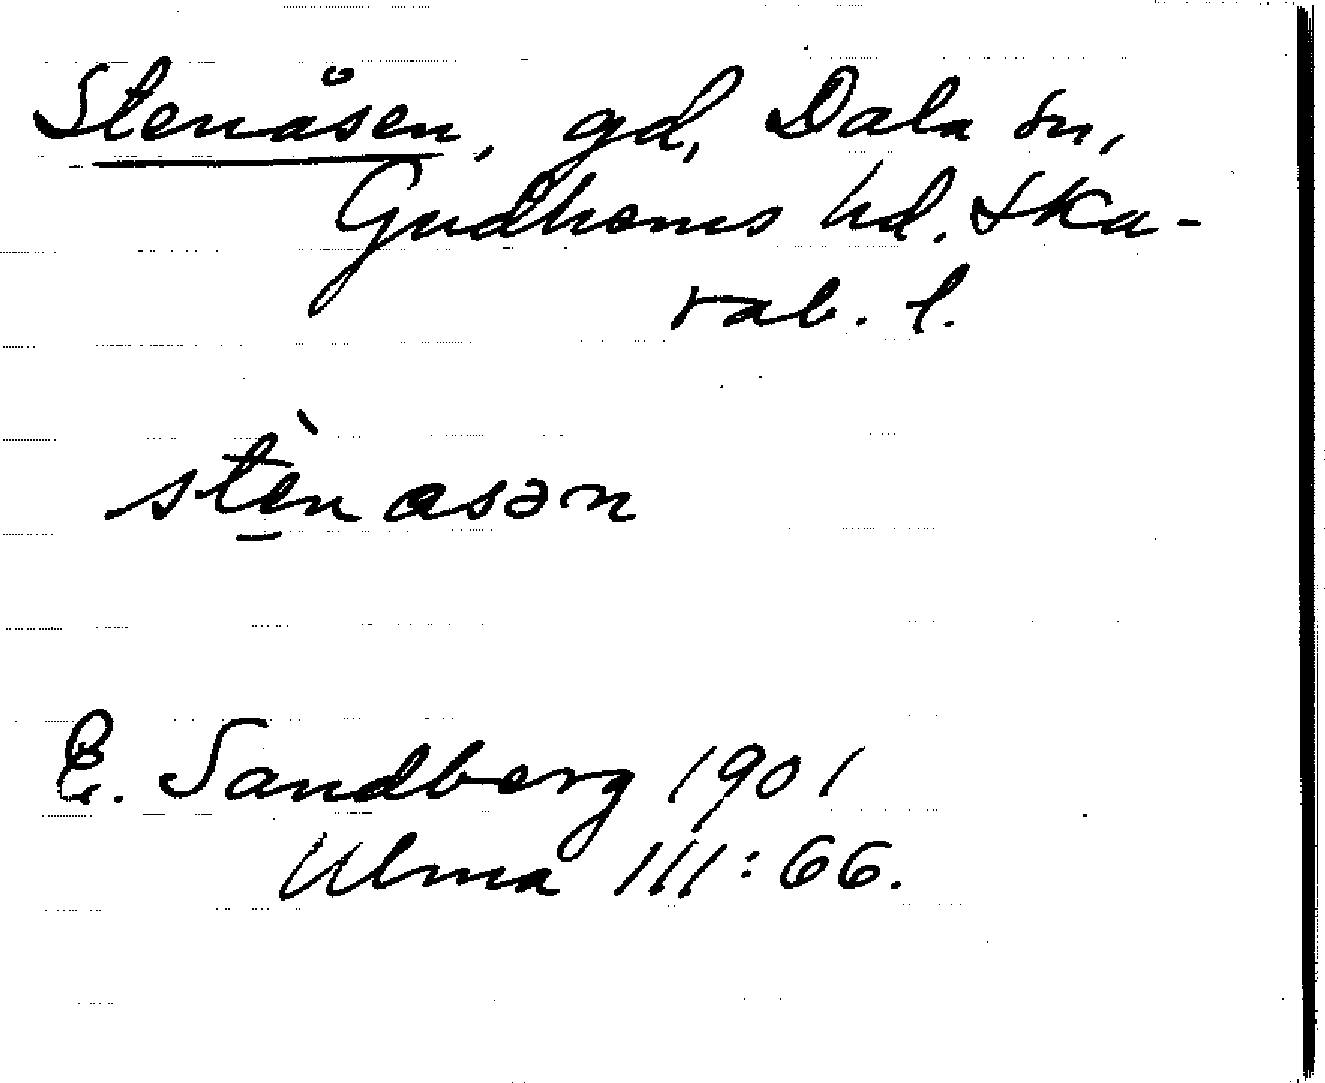 Stenåsen, gd, Dala sn,
Gudhems hd. Ska-
rab. l.
stè̱n asən
E. Sandberg 1901
Ulma 111:66.